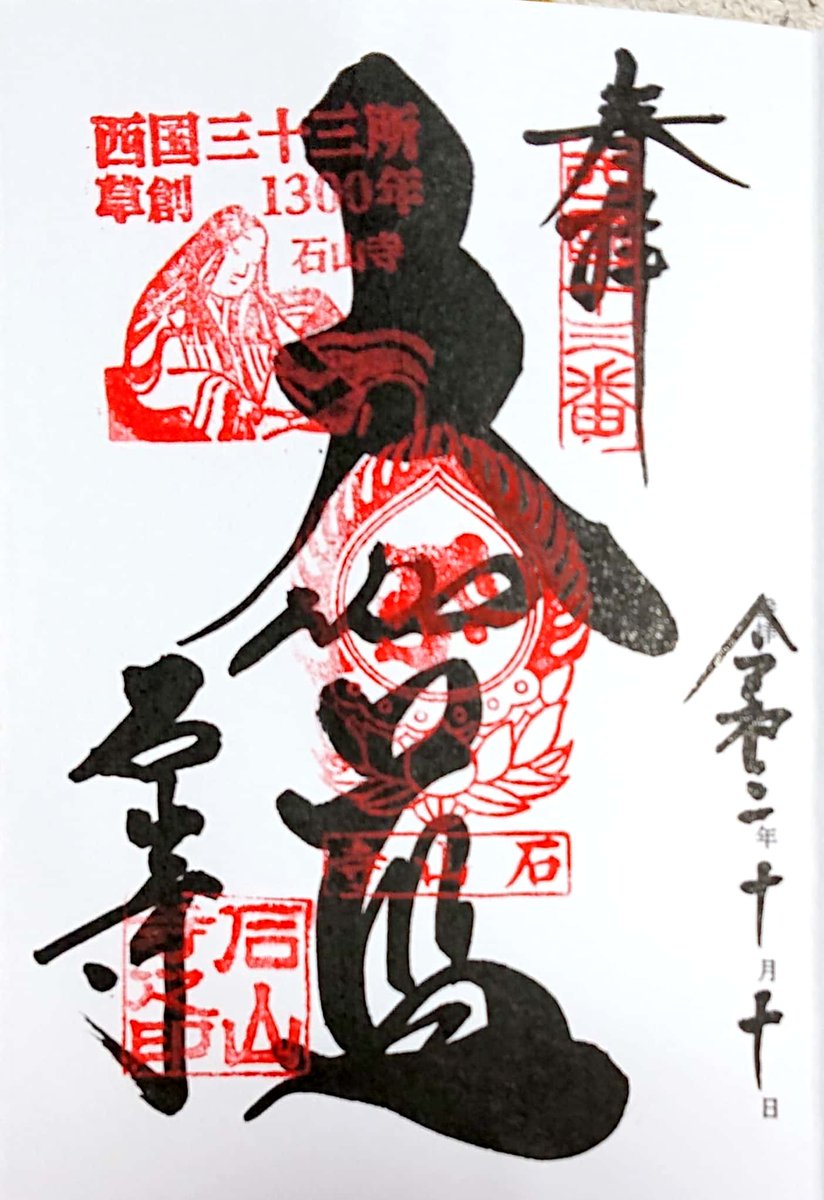 奉拝
西国十三番
西国三十三所
草創 1300年
石山寺
大伽藍
石山寺
石山寺
石山寺之印
令和二年十月十日